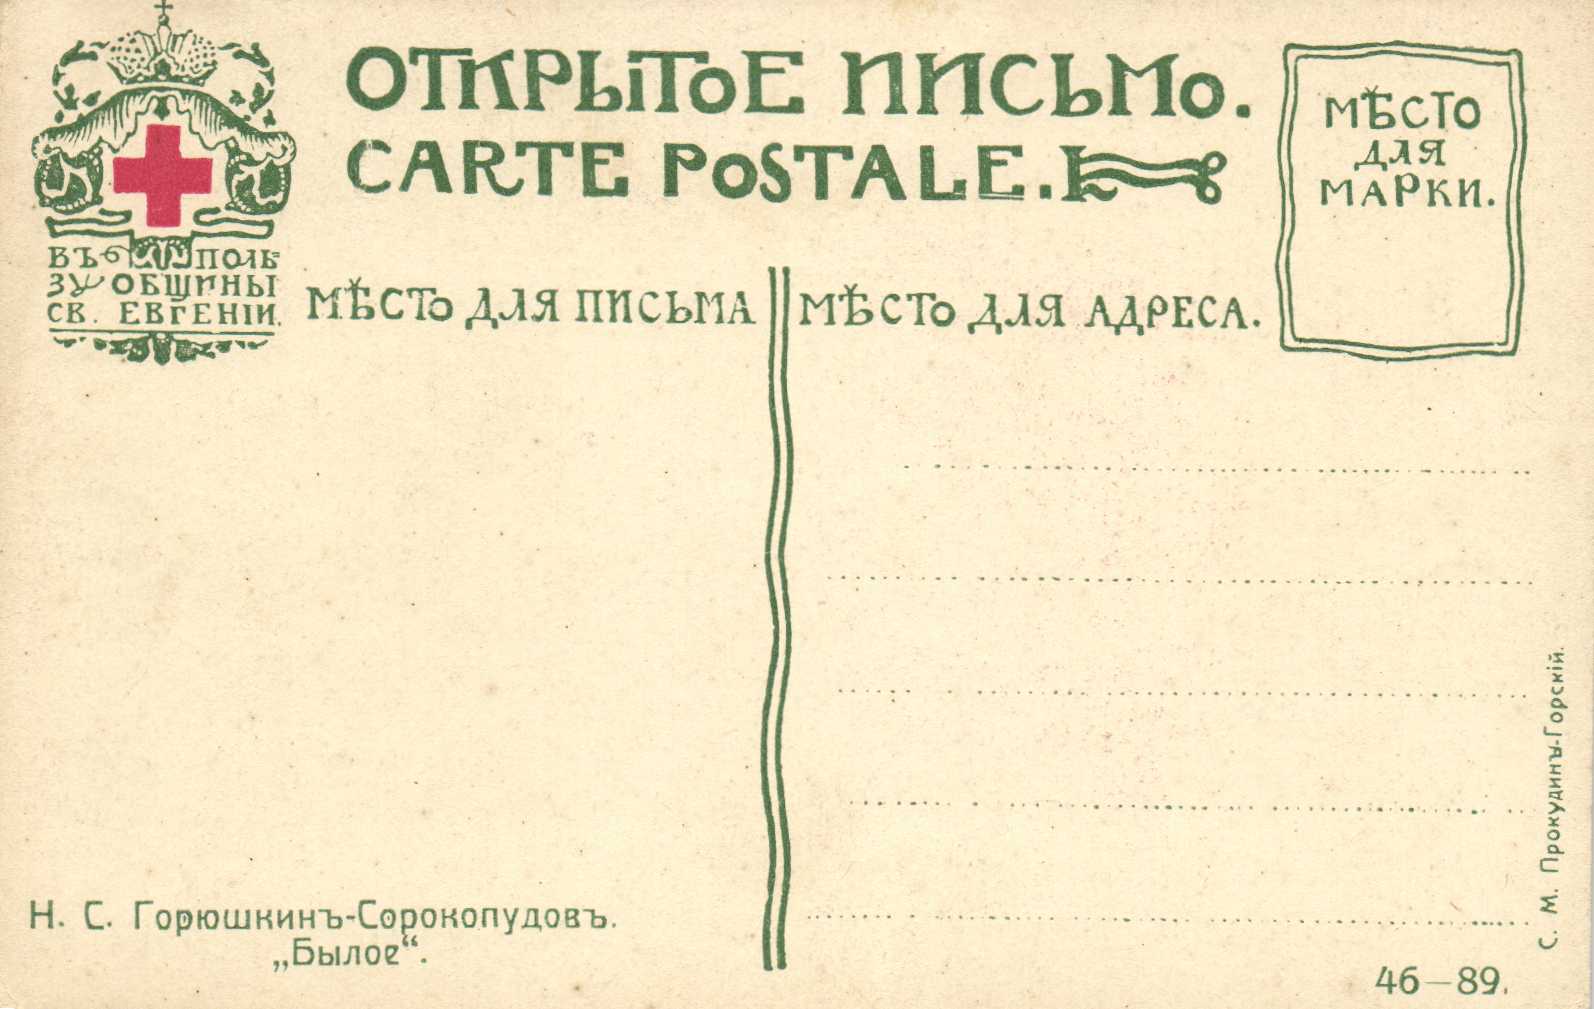 ОТКРЫТОЕ ПИСЬМО.
CARTE POSTALE.
МѢСТО
ДЛЯ
МАРКИ.
ВЪ ПОЛЬ-
ЗУ ОБЩИНЫ
СВ. ЕВГЕНІИ.
МѢСТО ДЛЯ ПИСЬМА
МѢСТО ДЛЯ АДРЕСА.
Н. С. Горюшкинъ-Сорокопудовъ.
„Былое“.
С. М. Прокудинъ-Горскій.
46—89.